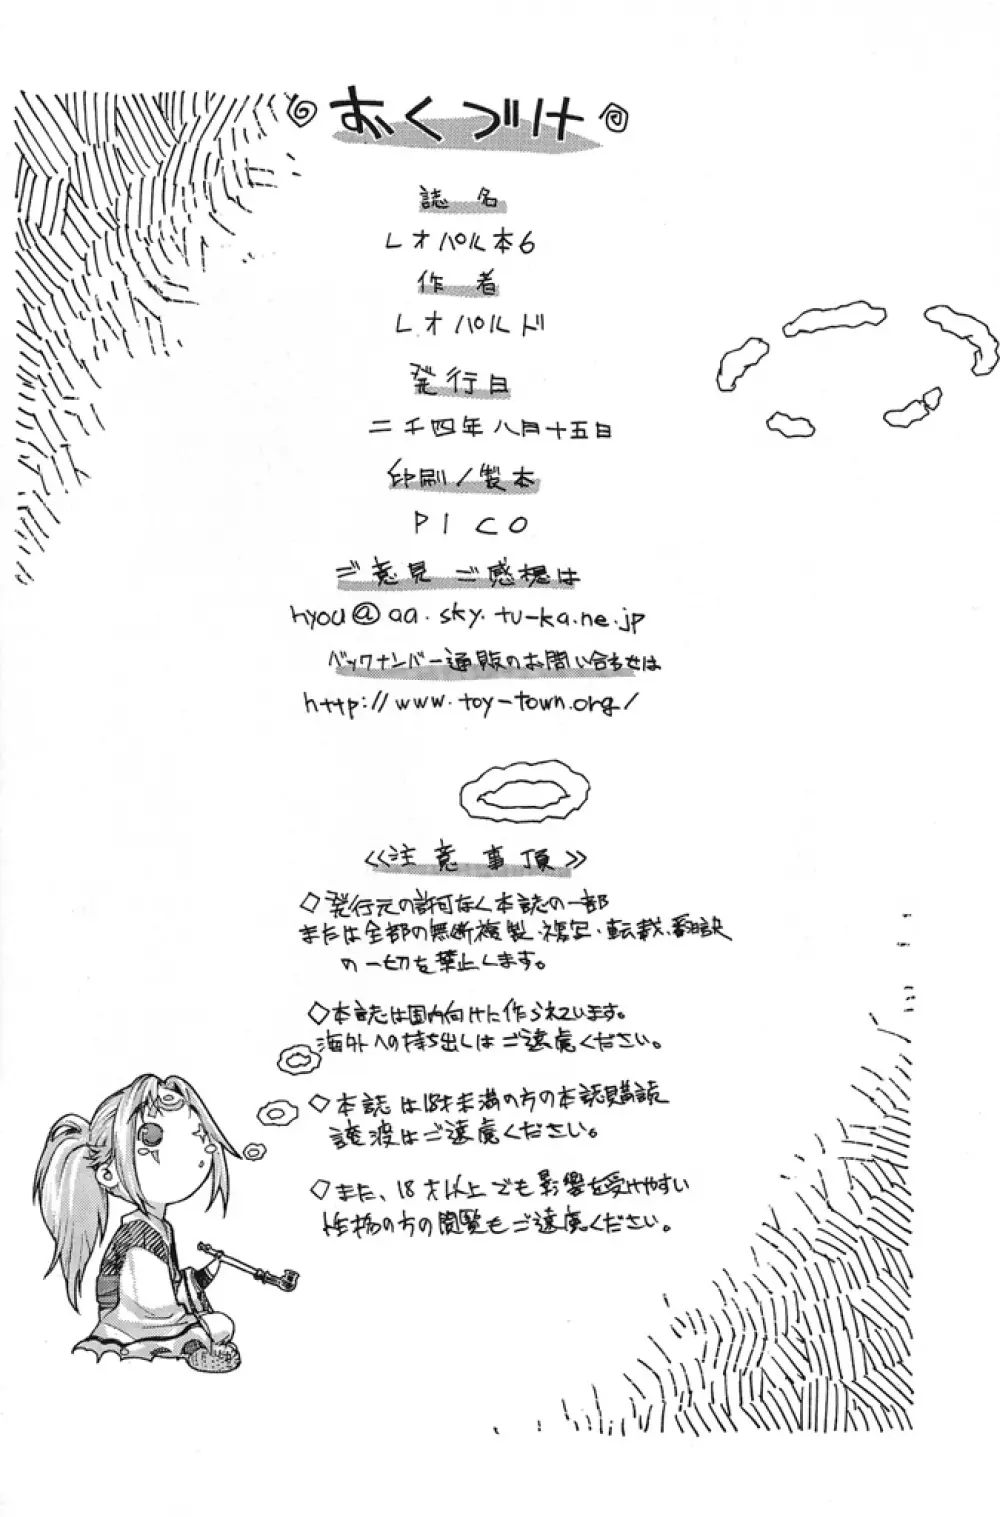 おくづけ
誌名
レオパル本6
作者
レオパルド
発行日
二千四年八月十五日
印刷/製本
PICO
ご意見 ご感想は
hyou@aa.sky.tu-ka.ne.jp
バックナンバー通販のお問い合わせは
http://www.toy-town.org/
≪注意事項≫
◇発行元の許可なく本誌の一部
または全部の無断複製、複写、転載、翻訳
の一切を禁止します。
◇本誌は国内向けに作られています。
海外への持ち出しはご遠慮ください。
◇本誌は18才未満の方の本誌購読
譲渡はご遠慮ください。
◇また、18才以上でも影響を受けやすい
性格の方の閲覧もご遠慮ください。